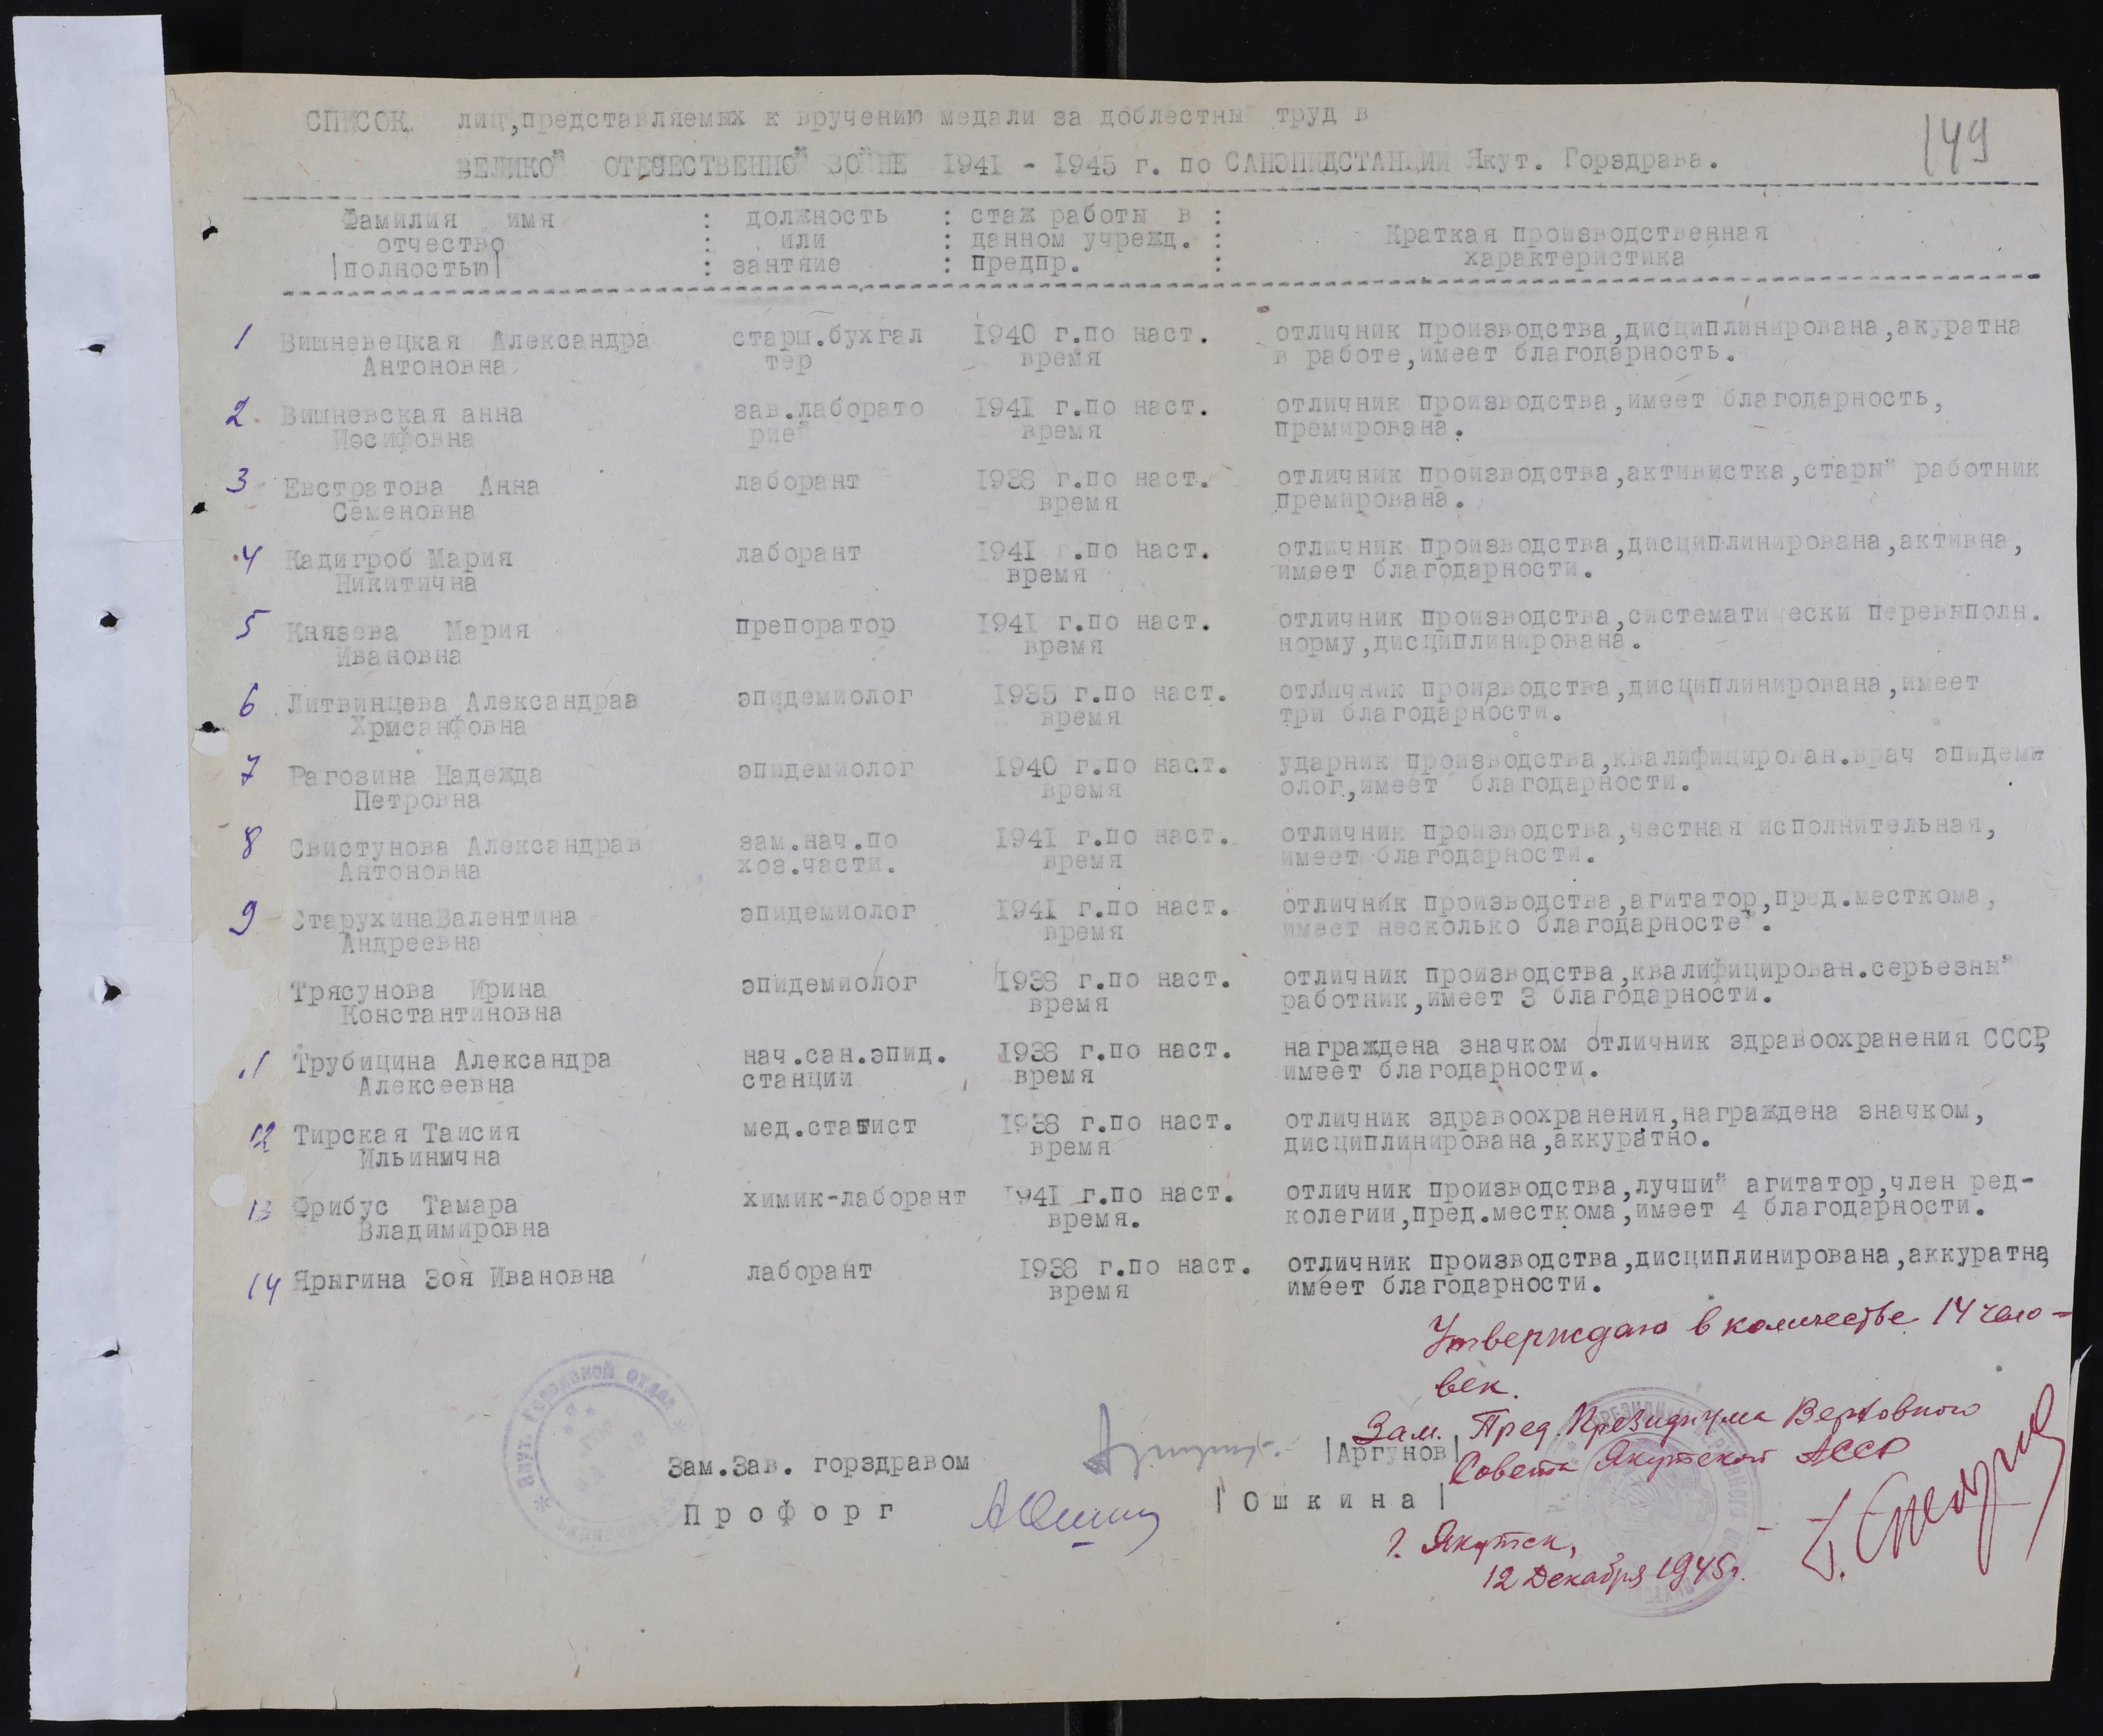 149
СПИСОК лиц,представляемых к вручению медали за доблестны" труд в
ВЕЛИКО" ОТЕЧЕСТВЕННО" ВО"НЕ 1941 - 1945 г. по САНЭПИДСТАНЦИИ Якут. Горздрава.
Фамилия имя : должность : стаж работы в :
отчество : или : данном учрежд. : Краткая производственная
|полностью| : зантяие : предпр. : характеристика
1 Вишневецкая Александра старш.бухгал 1940 г.по наст. отличник производства,дисциплинирована,акуратна
Антоновна тер время в работе,имеет благодарность.
2 Вишневская анна зав.лаборато 1941 г.по наст. отличник производства,имеет благодарность,
Иосифовна рие" время премирована.
3 Евстратова Анна лаборант 1938 г.по наст. отличник производства,активистка,стары" работник
Семеновна время премирована.
4 Кадигроб Мария лаборант 1941 г.по наст. отличник производства,дисциплинирована,активна,
Никитична время имеет благодарности.
5 Князева Мария препоратор 1941 г.по наст. отличник производства,систематически перевыполн.
Ивановна время норму,дисциплинирована.
6 Литвинцева Александраа эпидемиолог 1935 г.по наст. отличник производства,дисциплинирована,имеет
Хрисанфовна время три благодарности.
7 Рагозина Надежда эпидемиолог 1940 г.по наст. ударник производства,квалифицирован.врач эпидеми
Петровна время олог,имеет благодарности.
8 Свистунова Александрав зам.нач.по 1941 г.по наст. отличник производства,честная исполнительная,
Антоновна хоз.части. время имеет благодарности.
9 СтарухинаВалентина эпидемиолог 1941 г.по наст. отличник производства,агитатор,пред.месткома,
Андреевна время имеет несколько благодарносте".
Трясунова Ирина эпидемиолог 1938 г.по наст. отличник производства,квалифицирован.серьезны"
Константиновна время работник,имеет 3 благодарности.
1 Трубицина Александра нач.сан.эпид. 1938 г.по наст. награждена значком отличник здравоохранения СССР,
Алексеевна станции время имеет благодарности.
12 Тирская Таисия мед.статист 1938 г.по наст. отличник здравоохранения,награждена значком,
Ильинмчна время дисциплинирована,аккуратно.
13 Фрибус Тамара химик-лаборант 1941 г.по наст. отличник производства,лучши" агитатор,член ред-
Владимировна время. колегии,пред.месткома,имеет 4 благодарности.
14 Ярыгина Зоя Ивановна лаборант 1938 г.по наст. отличник производства,дисциплинирована,аккуратна,
время имеет благодарности.
Утверждаю в количестве 14 чело-
век.
Зам. Пред. Президиума Верховного
Совета Якутской АССР
Зам.Зав. горздравом |Аргунов|
Профорг |Ошкина|
г. Якутск,
12 Декабря 1945г.